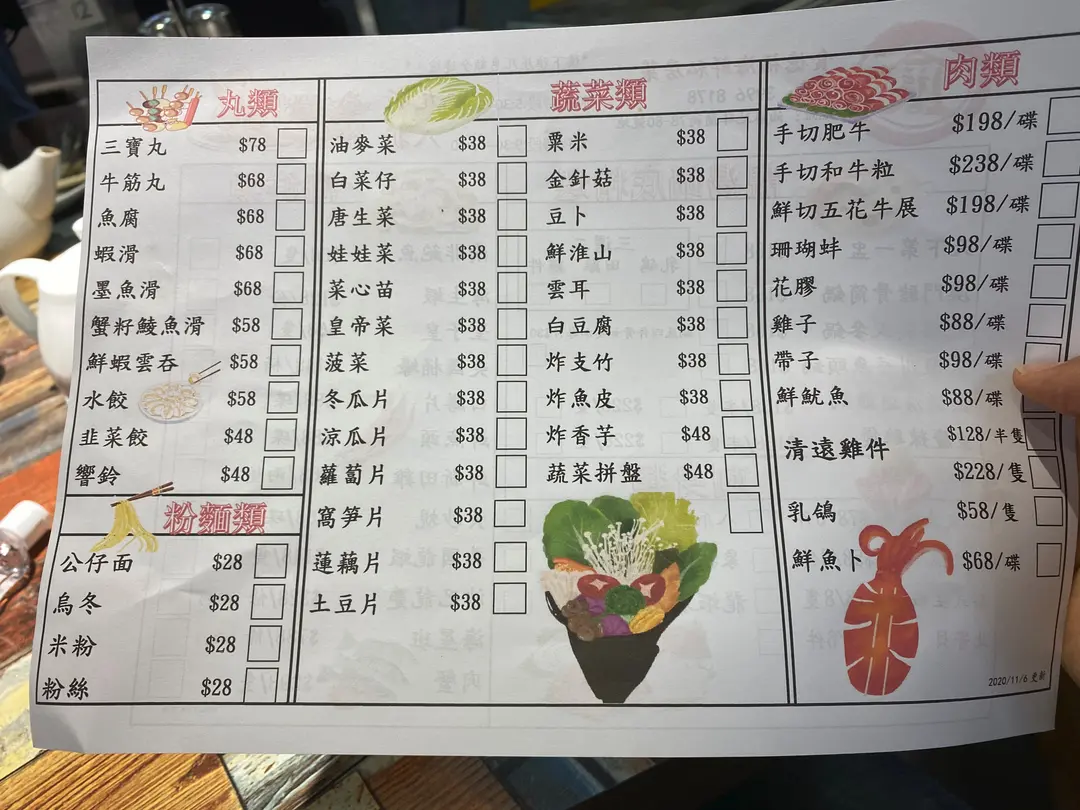 丸類
三寶丸 $78
牛筋丸 $68
魚腐 $68
蝦滑 $68
墨魚滑 $68
蟹籽鯪魚滑 $58
鮮蝦雲吞 $58
水餃 $58
韭菜餃 $48
響鈴 $48
粉麵類
公仔面 $28
烏冬 $28
米粉 $28
粉絲 $28
蔬菜類
油麥菜 $38
白菜仔 $38
唐生菜 $38
娃娃菜 $38
菜心苗 $38
皇帝菜 $38
菠菜 $38
冬瓜片 $38
涼瓜片 $38
蘿蔔片 $38
窩筍片 $38
蓮藕片 $38
土豆片 $38
粟米 $38
金針菇 $38
豆卜 $38
鮮淮山 $38
雲耳 $38
白豆腐 $38
炸支竹 $38
炸魚皮 $38
炸香芋 $48
蔬菜拼盤 $48
肉類
手切肥牛 $198/碟
手切和牛粒 $238/碟
鮮切五花牛展 $198/碟
珊瑚蚌 $98/碟
花膠 $98/碟
雞子 $88/碟
帶子 $98/碟
鮮魷魚 $88/碟
清遠雞件 $128/半隻
$228/隻
乳鴿 $58/隻
鮮魚卜 $68/碟
2020/11/6 更新